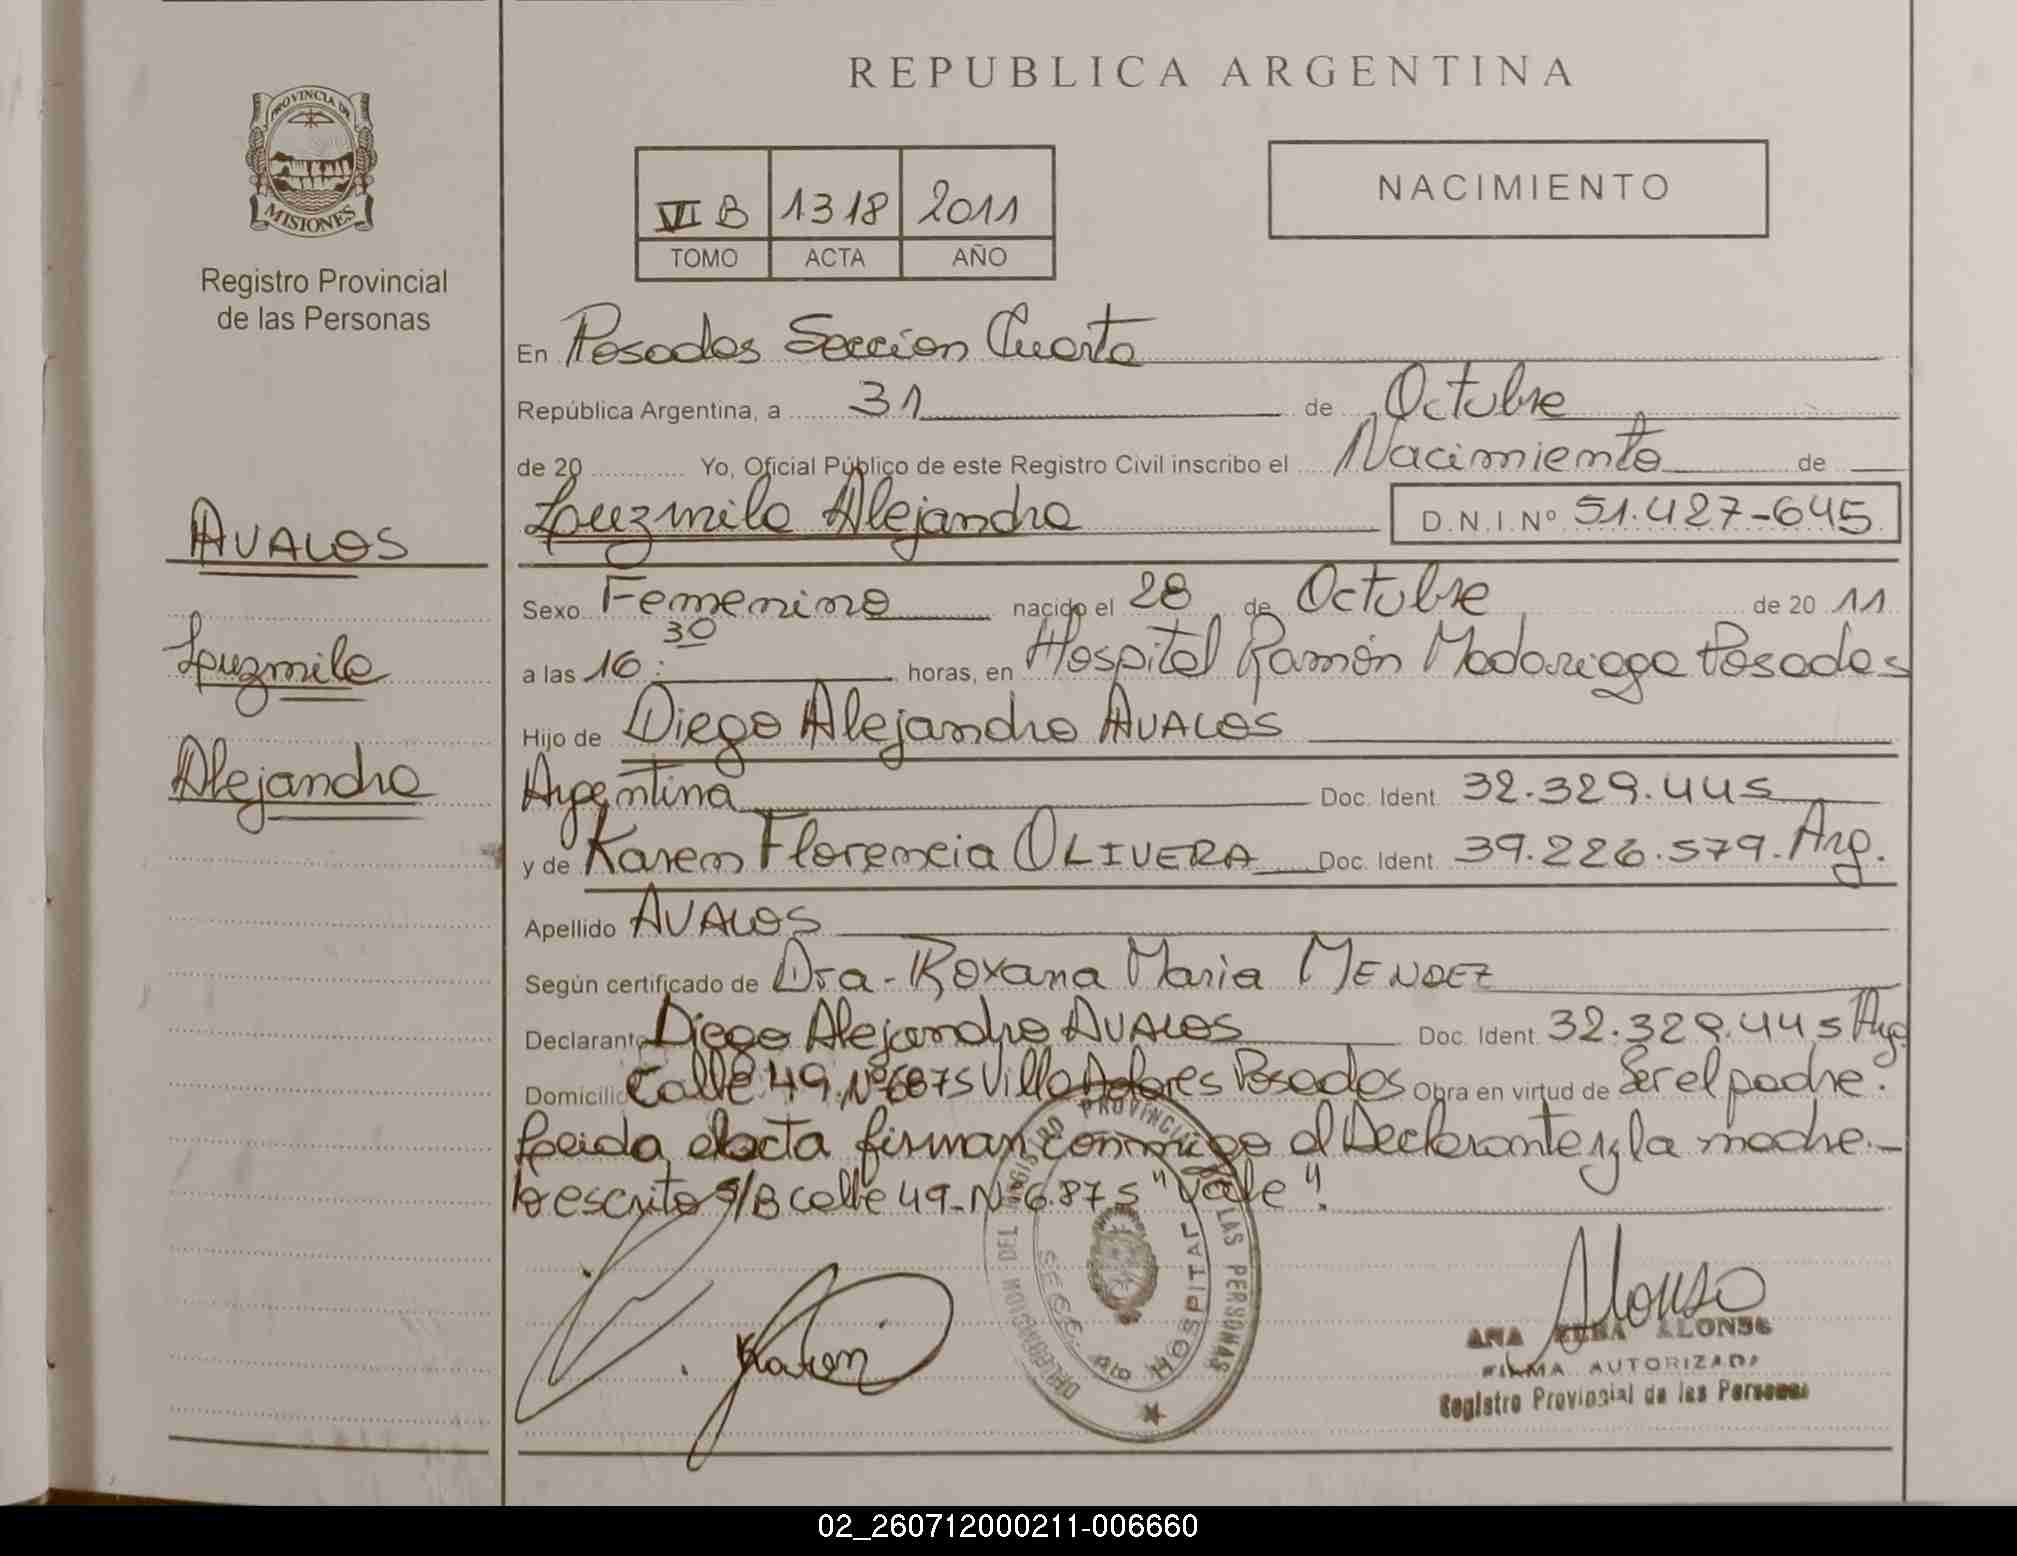 REPUBLICA ARGENTINA
PROVINCIA DE
MISIONES
Registro Provincial
de las Personas
VI B 1318 2011
TOMO ACTA AÑO
NACIMIENTO
En Posadas Sección Cuarta
República Argentina, a 31 de Octubre
de 20 Yo, Oficial Público de este Registro Civil inscribo el Nacimiento de
Luzmila Alejandra D.N.I. Nº 51.427-645
AVALOS
Luzmila
Alejandra
Sexo Femenino nacido el 28 de Octubre de 20 11
a las 16:30 horas, en Hospital Ramón Madariaga Posadas
Hijo de Diego Alejandro AVALOS
Argentina Doc. Ident. 32.329.445
y de Karen Florencia OLIVERA Doc. Ident. 39.226.579. Arg.
Apellido AVALOS
Según certificado de Dra. Roxana Maria MENDEZ
Declarante Diego Alejandro AVALOS Doc. Ident. 32.329.445 Arg
Domicilio Calle 49 Nº 6875 Villa Dolores Posadas Obra en virtud de Ser el padre.
Leida el acta firman conmigo el Declarante y la madre.-
lo escrito S/B calle 49-Nº 6.875 "Vale".
Karen
REGISTRO PROVINCIAL DE LAS PERSONAS
DELEGACION DEL
HOSPITAL
SECC. 4ta
Alonso
ANA ALONSO
FIRMA AUTORIZADA
Registro Provincial de las Personas
02_260712000211-006660